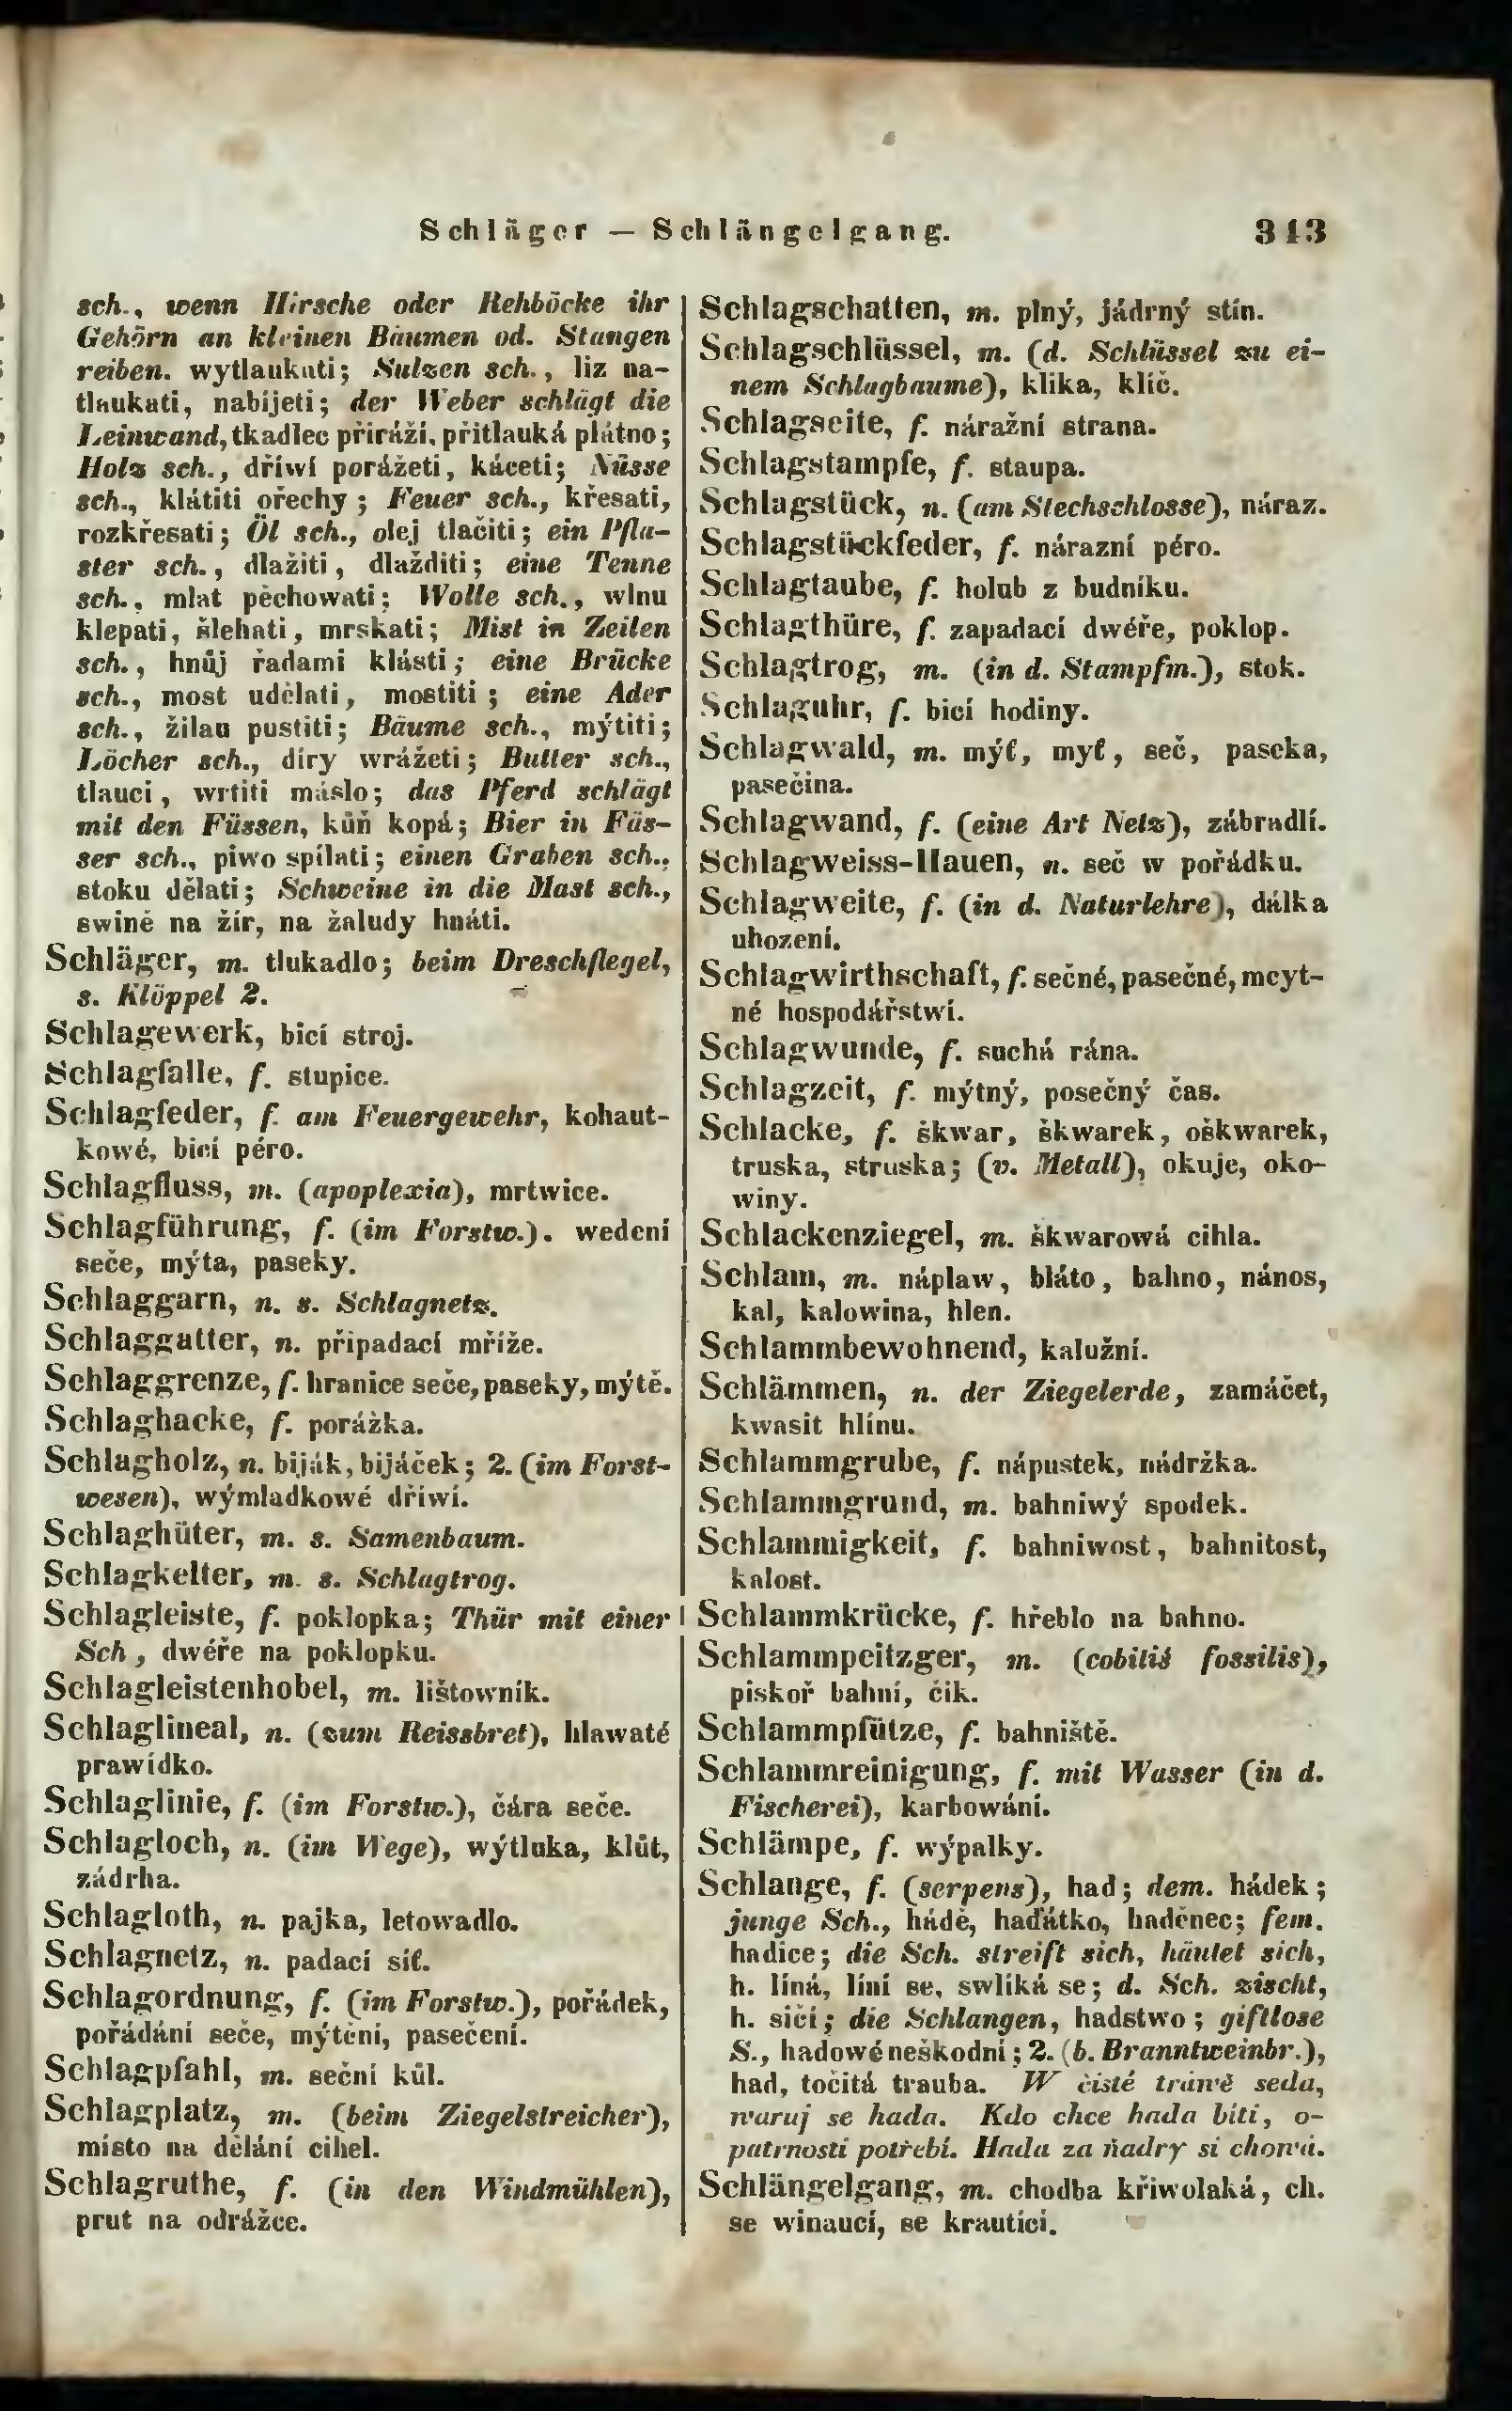 Schläger — Schlängelgang. 343
sch., wenn Hirsche oder Rehböcke ihr
Gehörn an kleinen Bäumen od. Stangen
reiben. wytlaukati; Sulzen sch., liz na-
tlaukati, nabijeti; der Weber schlägt die
Leinwand, tkadlec přiráží, přitlauká plátno;
Holz sch., dříwí porážeti, káceti; Nüsse
sch., klátiti ořechy; Feuer sch., křesati,
rozkřesati; Öl sch., olej tlačiti; ein Pfla-
ster sch., dlažiti, dlažditi; eine Tenne
sch., mlat pěchowati; Wolle sch., wlnu
klepati, šlehati, mrskati; Mist in Zeilen
sch., hnůj řadami klásti; eine Brücke
sch., most udělati, mostiti; eine Ader
sch., žilau pustiti; Bäume sch., mýtiti;
Löcher sch., díry wrážeti; Butter sch.,
tlauci, wrtiti máslo; das Pferd schlägt
mit den Füssen, kůň kopá; Bier in Fäs-
ser sch., piwo spílati; einen Graben sch.,
stoku dělati; Schweine in die Mast sch.,
swině na žír, na žaludy hnáti.
Schläger, m. tlukadlo; beim Dreschflegel,
s. Klöppel 2.
Schlagewerk, bicí stroj.
Schlagfalle, f. stupice.
Schlagfeder, f. am Feuergewehr, kohaut-
kowé, bicí péro.
Schlagfluss, m. (apoplexia), mrtwice.
Schlagführung, f. (im Forstw.). wedení
seče, mýta, paseky.
Schlaggarn, n. s. Schlagnetz.
Schlaggatter, n. připadací mříže.
Schlaggrenze, f. hranice seče, paseky, mýtě.
Schlaghacke, f. porážka.
Schlagholz, n. biják, bijáček; 2. (im Forst-
wesen), wýmladkowé dříwí.
Schlaghüter, m. s. Samenbaum.
Schlagkelter, m. s. Schlagtrog.
Schlagleiste, f. poklopka; Thür mit einer
Sch, dwéře na poklopku.
Schlagleistenhobel, m. lištowník.
Schlaglineal, n. (zum Reissbret), hlawaté
prawídko.
Schlaglinie, f. (im Forstw.), čára seče.
Schlagloch, n. (im Wege), wýtluka, klůt,
zádrha.
Schlagloth, n. pajka, letowadlo.
Schlagnetz, n. padací síť.
Schlagordnung, f. (im Forstw.), pořádek,
pořádání seče, mýtění, pasečení.
Schlagpfahl, m. seční kůl.
Schlagplatz, m. (beim Ziegelstreicher),
místo na dělání cihel.
Schlagruthe, f. (in den Windmühlen),
prut na odrážce.
Schlagschatten, m. plný, jádrný stín.
Schlagschlüssel, m. (d. Schlüssel zu ei-
nem Schlagbaume), klika, klíč.
Schlagseite, f. náražní strana.
Schlagstampfe, f. staupa.
Schlagstück, n. (am Stechschlosse), náraz.
Schlagstückfeder, f. nárazní péro.
Schlagtaube, f. holub z budníku.
Schlagthüre, f. zapadací dwéře, poklop.
Schlagtrog, m. (in d. Stampfm.), stok.
Schlaguhr, f. bicí hodiny.
Schlagwald, m. mýť, myť, seč, paseka,
pasečina.
Schlagwand, f. (eine Art Netz), zábradlí.
Schlagweiss-Hauen, n. seč w pořádku.
Schlagweite, f. (in d. Naturlehre), dálka
uhození.
Schlagwirthschaft, f. sečné, pasečné, meyt-
né hospodářstwí.
Schlagwunde, f. suchá rána.
Schlagzeit, f. mýtný, posečný čas.
Schlacke, f. škwar, škwarek, oškwarek,
truska, struska; (v. Metall), okuje, oko-
winy.
Schlackenziegel, m. škwarowá cihla.
Schlam, m. náplaw, bláto, bahno, nános,
kal, kalowina, hlen.
Schlammbewohnend, kalužní.
Schlämmen, n. der Ziegelerde, zamáčet,
kwasit hlínu.
Schlammgrube, f. nápustek, nádržka.
Schlammgrund, m. bahniwý spodek.
Schlammigkeit, f. bahniwost, bahnitost,
kalost.
Schlammkrücke, f. hřeblo na bahno.
Schlammpeitzger, m. (cobilis fossilis),
piskoř bahní, čik.
Schlammpfütze, f. bahniště.
Schlammreinigung, f. mit Wasser (in d.
Fischerei), karbowání.
Schlämpe, f. wýpalky.
Schlange, f. (serpens), had; dem. hádek;
junge Sch., hádě, haďátko, haděnec; fem.
hadice; die Sch. streift sich, häutet sich,
h. líná, líní se, swlíká se; d. Sch. zischt,
h. sičí; die Schlangen, hadstwo; giftlose
S., hadowé neškodní; 2. (b. Branntweinbr.),
had, točitá trauba. W čisté tráwě seda,
waruj se hada. Kdo chce hada bíti, o-
patrnosti potřebí. Hada za ňadry si chowá.
Schlängelgang, m. chodba křiwolaká, ch.
se winaucí, se krautící.